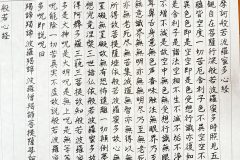 般若波羅蜜多心經
觀自在菩薩行深般若波羅蜜多時照見五
蘊皆空度一切苦厄舍利子色不異空空
不異色色即是空空即是色受想行識亦復如
是舍利子是諸法空相不生不滅不垢不淨
不增不減是故空中無色無受想行識無眼
耳鼻舌身意無色聲香味觸法無眼界乃
至無意識界無無明亦無無明盡乃至無
老死亦無老死盡無苦集滅道無智亦無
得以無所得故菩提薩埵依般若波羅蜜多
故心無罣礙無罣礙故無有恐怖遠離一切顛倒夢
想究竟涅槃三世諸佛依般若波羅蜜多故
得阿耨多羅三藐三菩提故知般若波羅蜜
多是大神咒是大明咒是無上咒是無等等
咒能除一切苦真實不虛故說般若波羅蜜
多咒即說咒曰揭諦揭諦波羅揭諦波羅僧揭諦菩提薩婆訶
般若心經